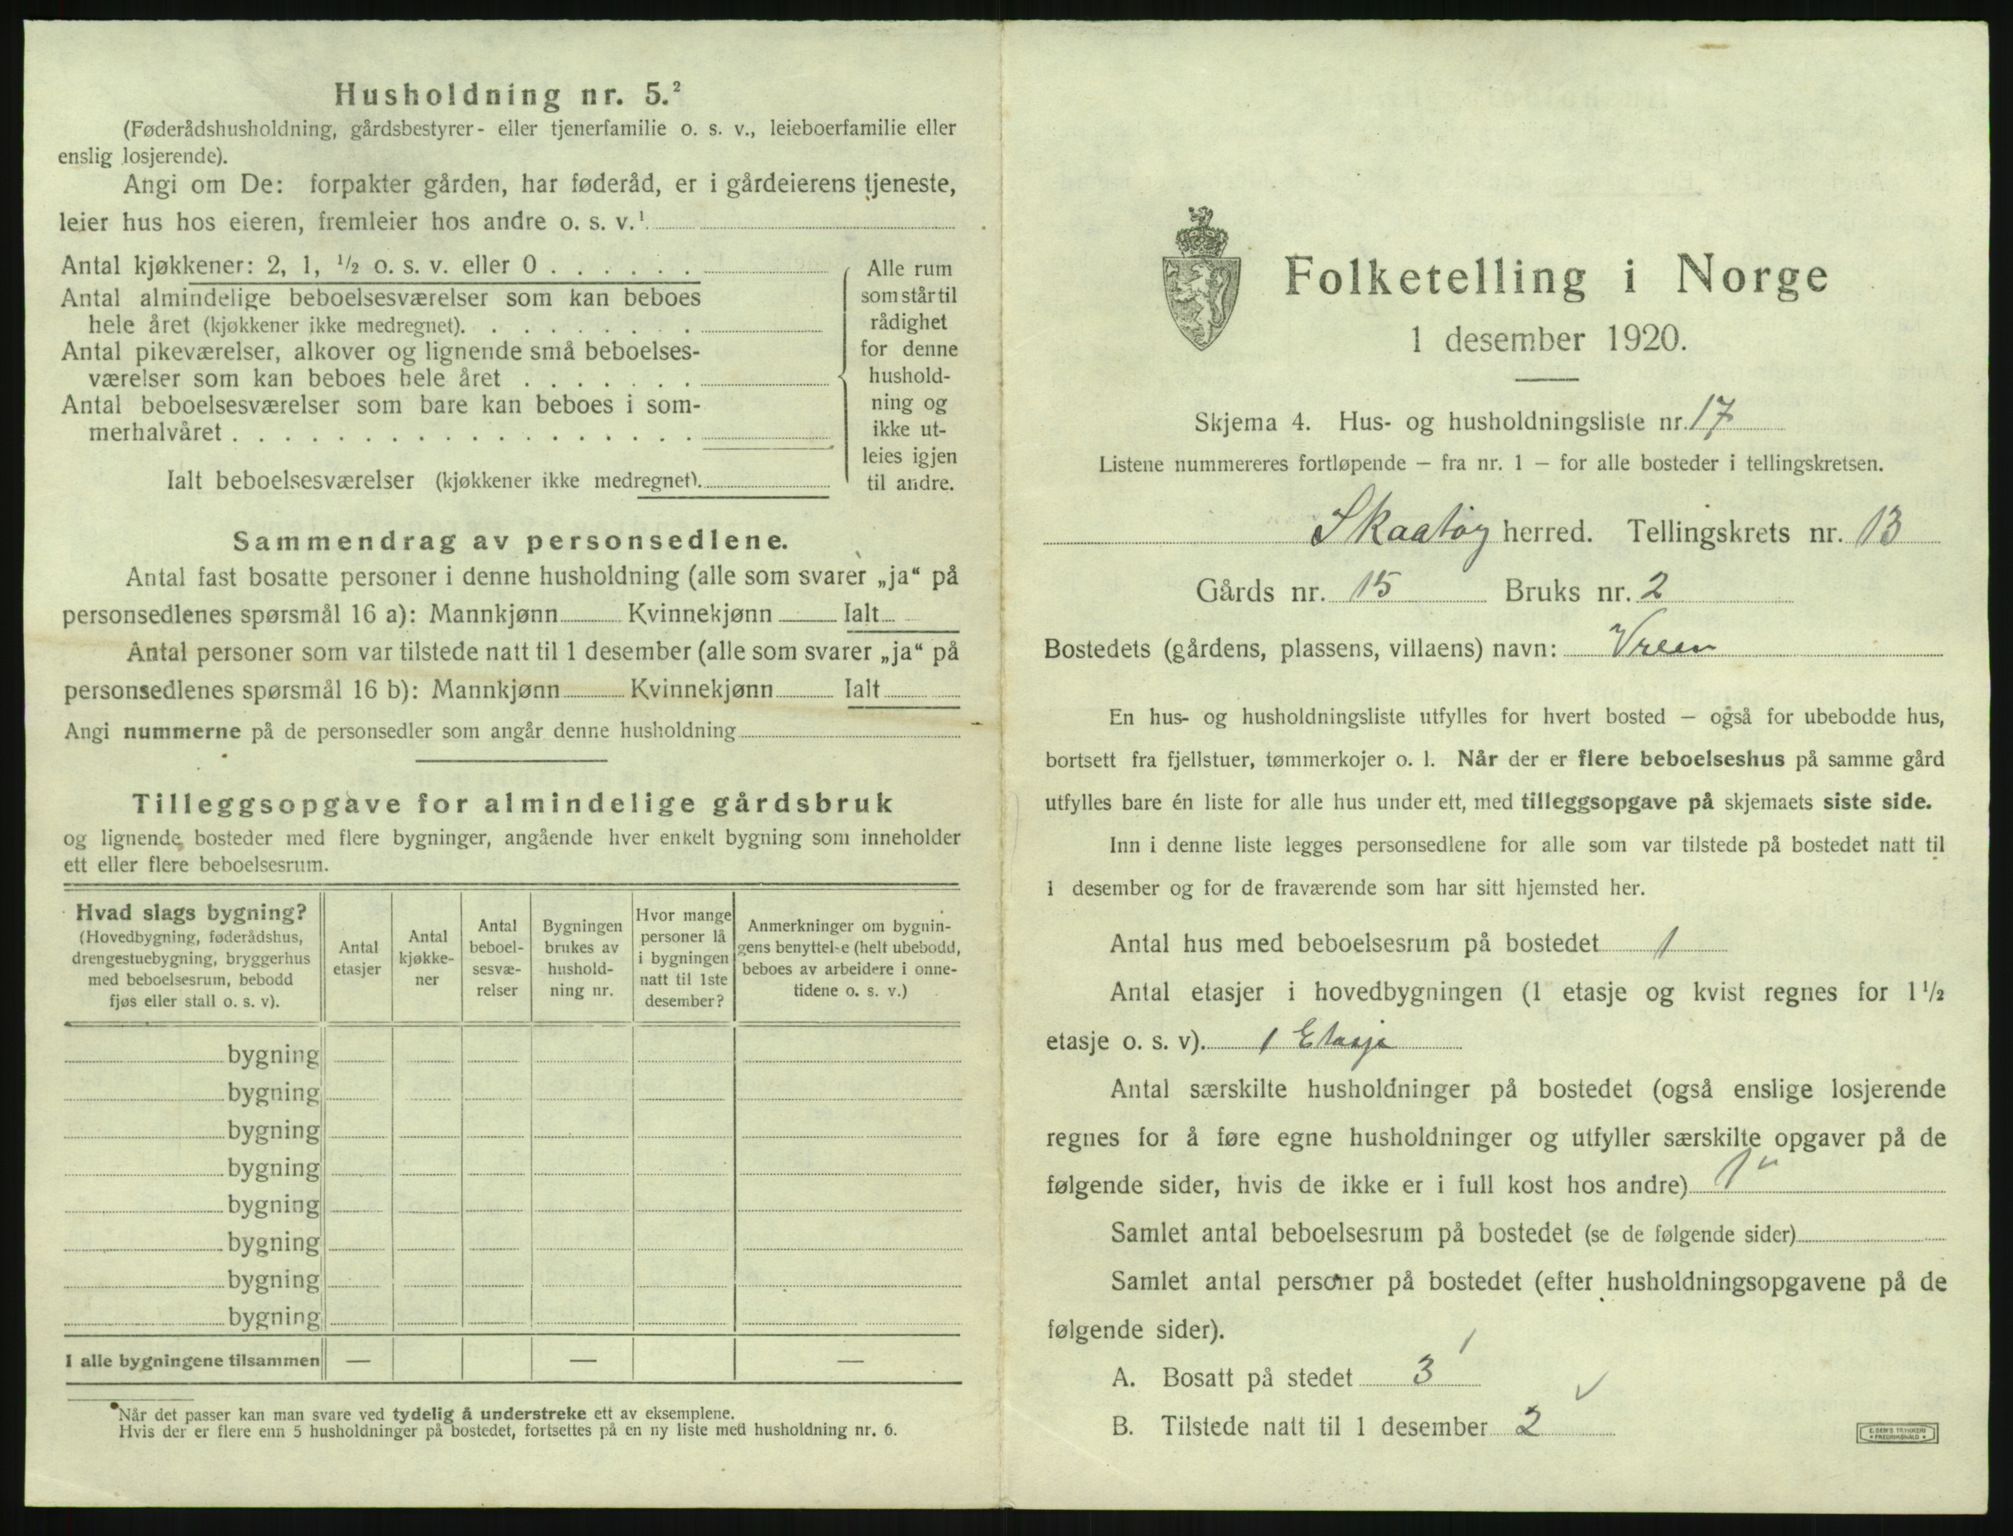 Husholdning nr. 5.²
(Føderådshusholdning, gårdsbestyrer- eller tjenerfamilie o. s. v., leieboerfamilie eller
enslig losjerende).
Angi om De: forpakter gården, har føderåd, er i gårdeierens tjeneste,
leier hus hos eieren, fremleier hos andre o. s. v.¹
Antal kjøkkener: 2, 1, ½ o. s. v. eller 0 . . . . . .
Antal almindelige beboelsesværelser som kan beboes
hele året (kjøkkener ikke medregnet). . . . . . . . .
Antal pikeværelser, alkover og lignende små beboelses-
værelser som kan beboes hele året . . . . . . .
Antal beboelsesværelser som bare kan beboes i som-
merhalvåret . . . . . . . . . . . . . . . . . .
Ialt beboelsesværelser (kjøkkener ikke medregnet).
Alle rum
som står til
rådighet
for denne
hushold-
ning og
ikke ut-
leies igjen
til andre.
Sammendrag av personsedlene.
Antal fast bosatte personer i denne husholdning (alle som svarer „ja“ på
personsedlenes spørsmål 16 a): Mannkjønn Kvinnekjønn Ialt
Antal personer som var tilstede natt til 1 desember (alle som svarer „ja“ på
personsedlenes spørsmål 16 b): Mannkjønn Kvinnekjønn Ialt
Angi nummerne på de personsedler som angår denne husholdning
Tilleggsopgave for almindelige gårdsbruk
og lignende bosteder med flere bygninger, angående hver enkelt bygning som inneholder
ett eller flere beboelsesrum.
Hvad slags bygning?
(Hovedbygning, føderådshus,
drengestuebygning, bryggerhus
med beboelsesrum, bebodd
fjøs eller stall o. s. v).
Antal
etasjer
Antal
kjøkke-
ner
Antal
beboel-
sesvæ-
relser
Bygningen
brukes av
hushold-
ning nr.
Hvor mange
personer lå
i bygningen
natt til 1ste
desember?
Anmerkninger om bygnin-
gens benyttelse (helt ubebodd,
beboes av arbeidere i onne-
tidene o. s. v.)
bygning
bygning
bygning
bygning
bygning
bygning
bygning
bygning
I alle bygningene tilsammen — — —
Når det passer kan man svare ved tydelig å understreke ett av eksemplene.
Hvis der er flere enn 5 husholdninger på bostedet, fortsettes på en ny liste med husholdning nr. 6.
Folketelling i Norge
1 desember 1920.
Skjema 4. Hus- og husholdningsliste nr. 17
Listene nummereres fortløpende – fra nr. 1 – for alle bosteder i tellingskretsen.
Skaatøy herred. Tellingskrets nr. 13
Gårds nr. 15 Bruks nr. 2
Bostedets (gårdens, plassens, villaens) navn: Vreen
En hus- og husholdningsliste utfylles for hvert bosted – også for ubebodde hus,
bortsett fra fjellstuer, tømmerkojer o. l. Når der er flere beboelseshus på samme gård
utfylles bare én liste for alle hus under ett, med tilleggsopgave på skjemaets siste side.
Inn i denne liste legges personsedlene for alle som var tilstede på bostedet natt til
1 desember og for de fraværende som har sitt hjemsted her.
Antal hus med beboelsesrum på bostedet 1
Antal etasjer i hovedbygningen (1 etasje og kvist regnes for 1½
etasje o. s. v). 1 Etasje
Antal særskilte husholdninger på bostedet (også enslige losjerende
regnes for å føre egne husholdninger og utfyller særskilte opgaver på de
følgende sider, hvis de ikke er i full kost hos andre) 1
Samlet antal beboelsesrum på bostedet (se de følgende sider)
Samlet antal personer på bostedet (efter husholdningsopgavene på de
følgende sider).
A. Bosatt på stedet 3
B. Tilstede natt til 1 desember 2